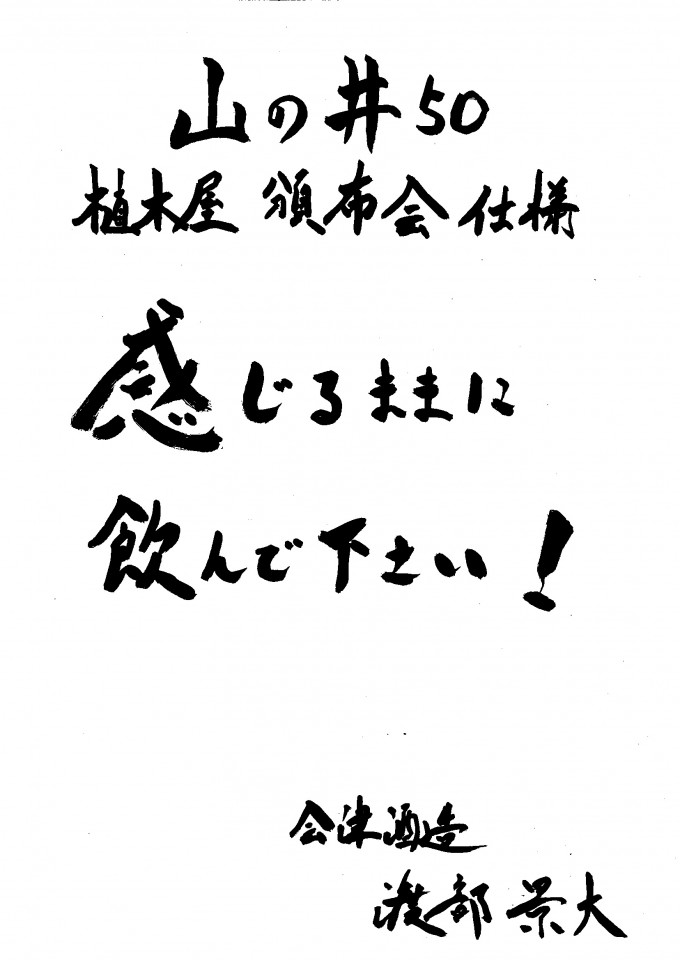 山の井50
植木屋 頒布会 仕様
感じるままに
飲んで下さい!
会津酒造
渡部 景大